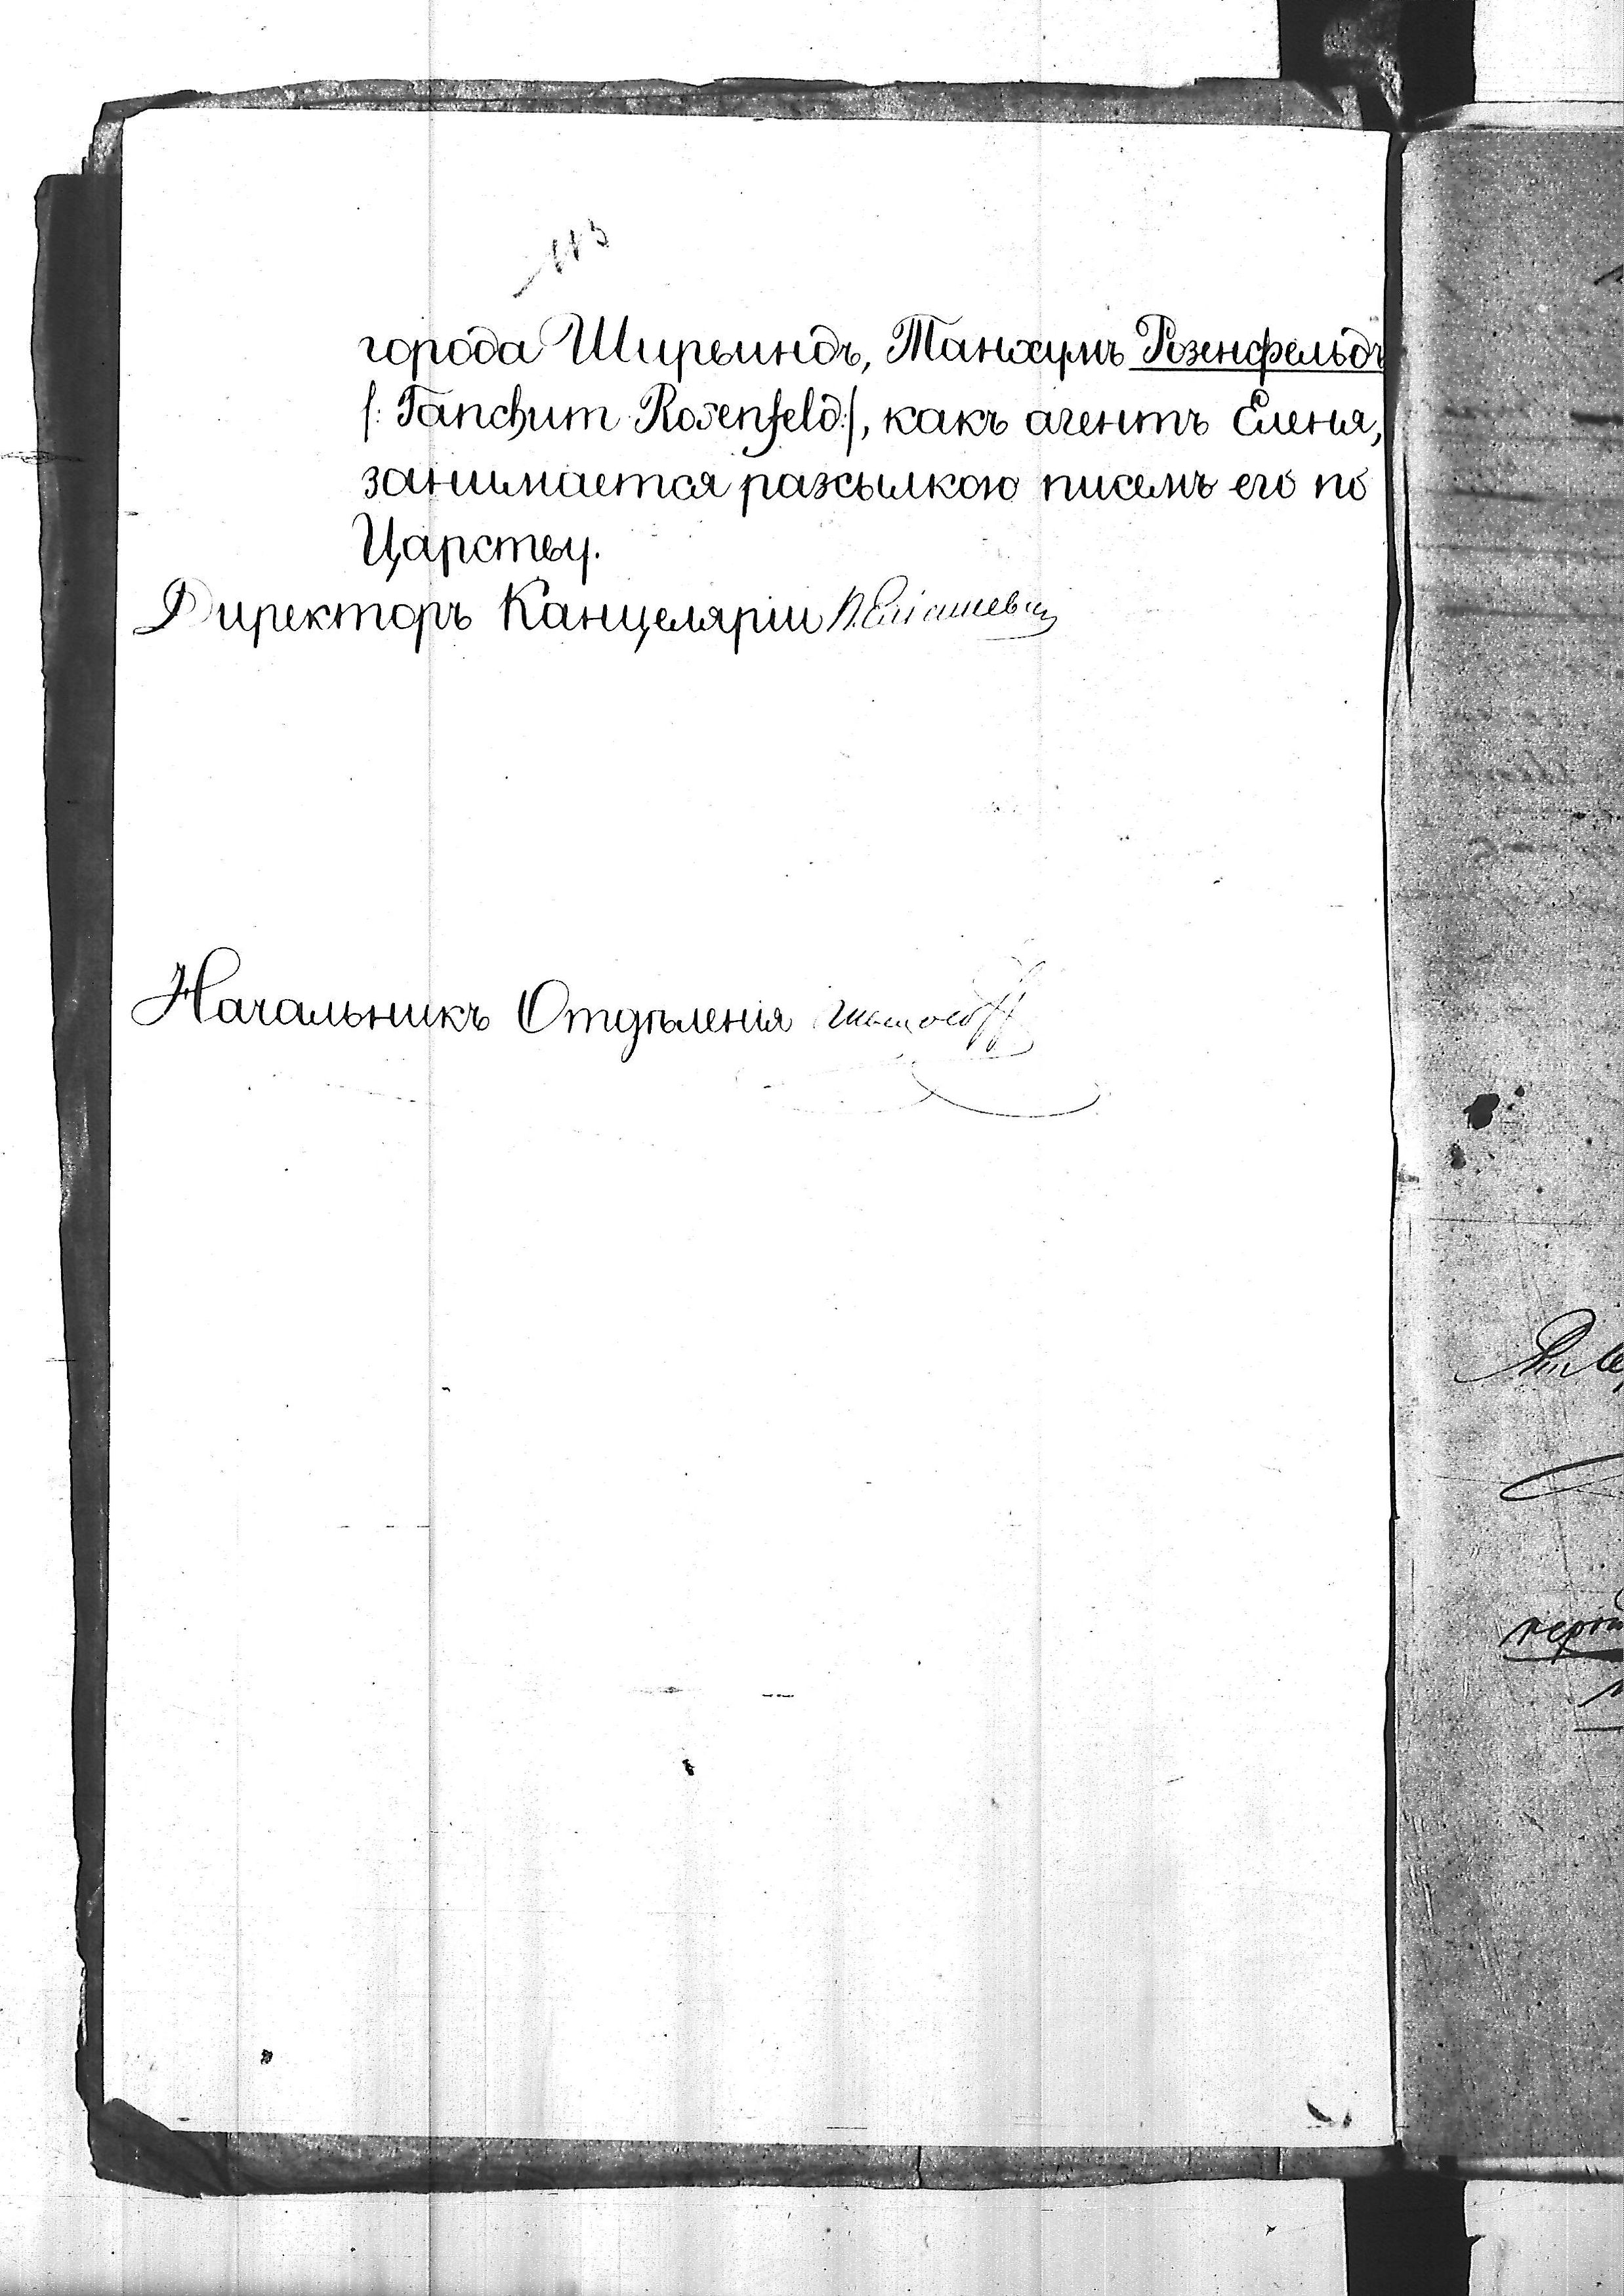 113
города Ширвиндъ, Танхумъ Розенфельдъ
/: Tanchum Rosenfeld:/, какъ агентъ Еленя,
занимается разсылкою писемъ его по
Царству.
Директоръ Канцеляріи
Начальникъ Отдѣленія